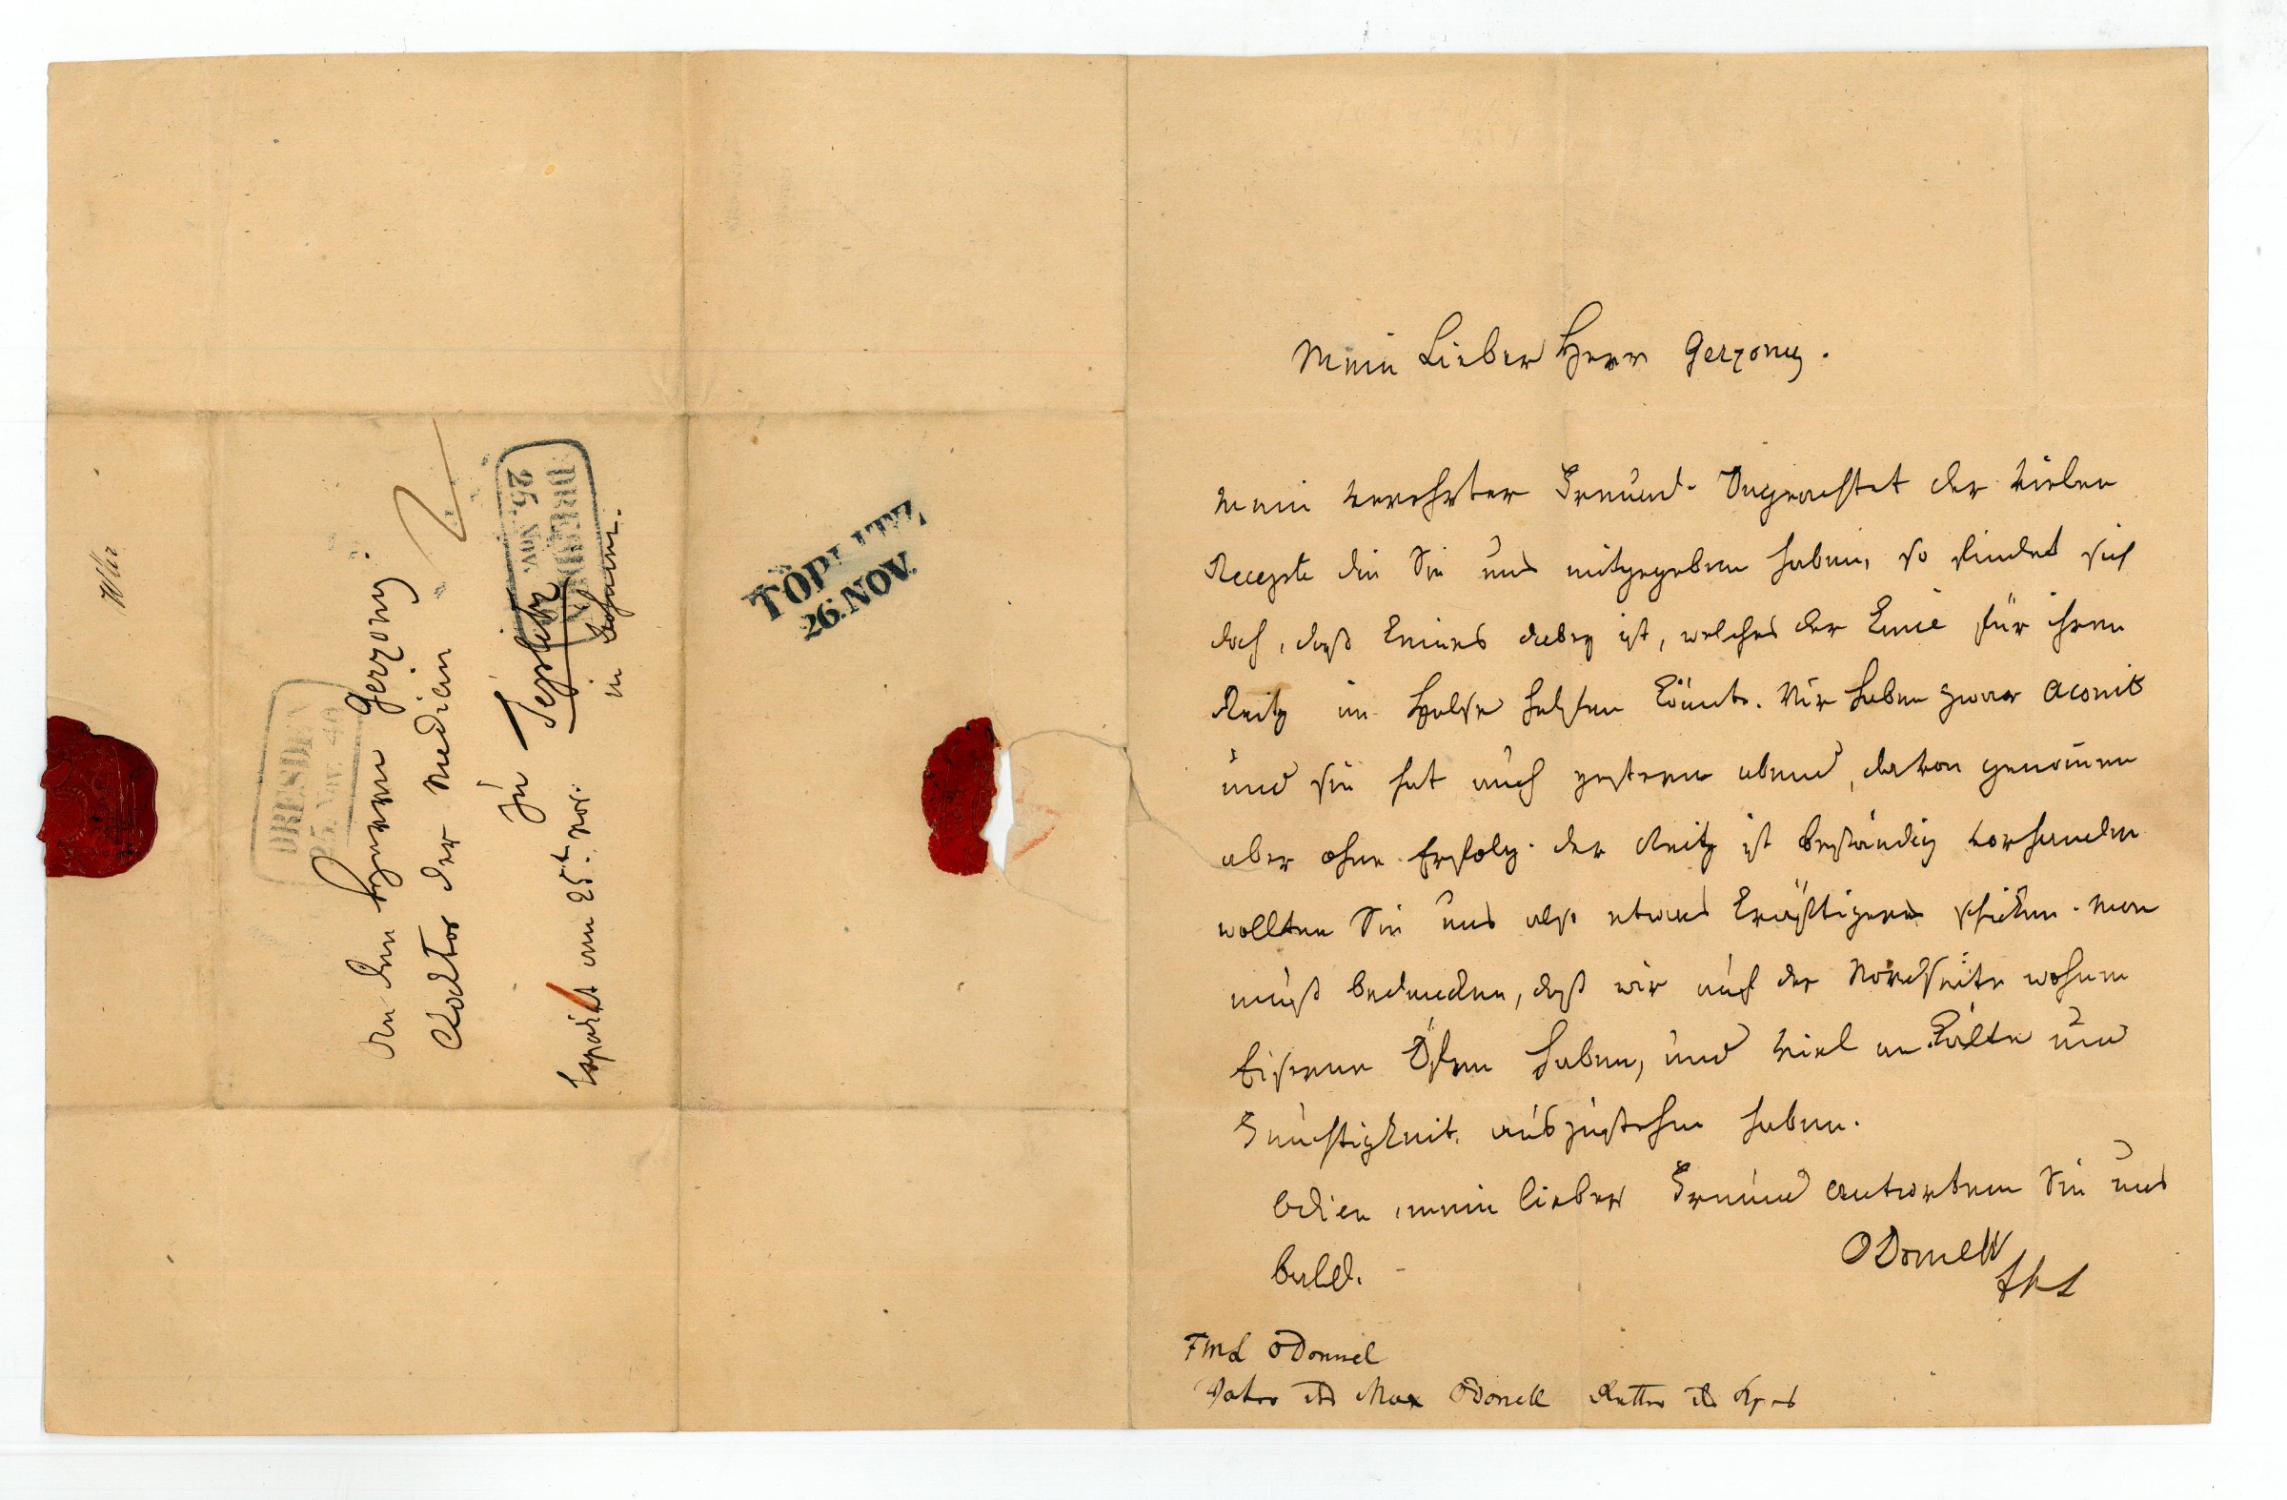 Mein Lieber Herr Gerzony.
Mein verehrter Freund. Ungeachtet der vielen
Recepte die Sie uns mitgegeben haben, so findet sich
doch, daß keines dabey ist, welches der Euie für ihren
Reitz im Halse helfen könnte. Wir haben zwar Aconit
und sie hat auch gestern abend, davon genomen
aber ohne Erfolg. der Reitz ist beständig vorhanden
wollten Sie uns also etwas kräftigeres schicken. Man
muß bedencken, daß wir auf der Nordseite wohnen
Eiserne Öfen haben, und viel an Kälte und
Feuchtigkeit auszustehen haben.
Adieu, mein lieber Freund antworten Sie uns
bald.
ODonell
FML
FML ODonnel
Vater des Max ODonell Retter des
An den Herren Gerzony.
Doctor der Medicin
zu Teplitz
in Böhmen.
am 25t. Nov.
DRESDEN
25. Nov. 40
DRESDEN
25. Nov.
TÖPLITZ
26.NOV.